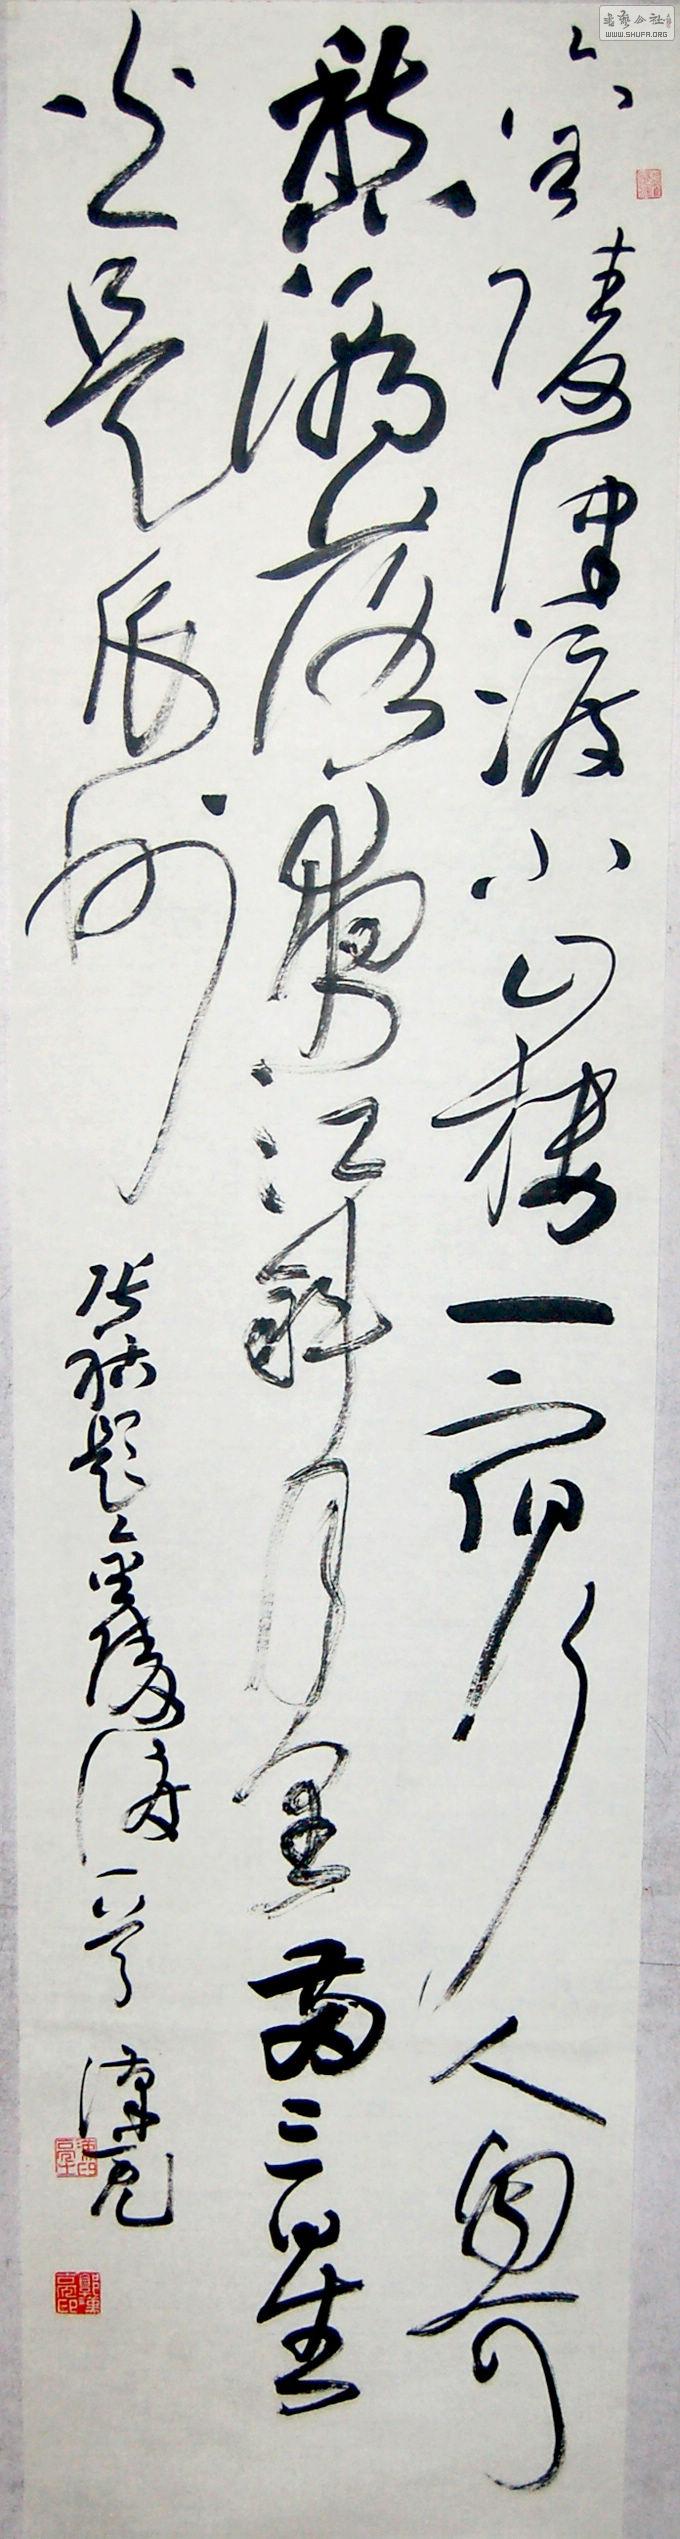 書藝公社
WWW.SHUFA.ORG
金陵津渡小山楼一宿行人自可
愁潮落夜江斜月里两三星
火是瓜州
张祜题金陵渡一首